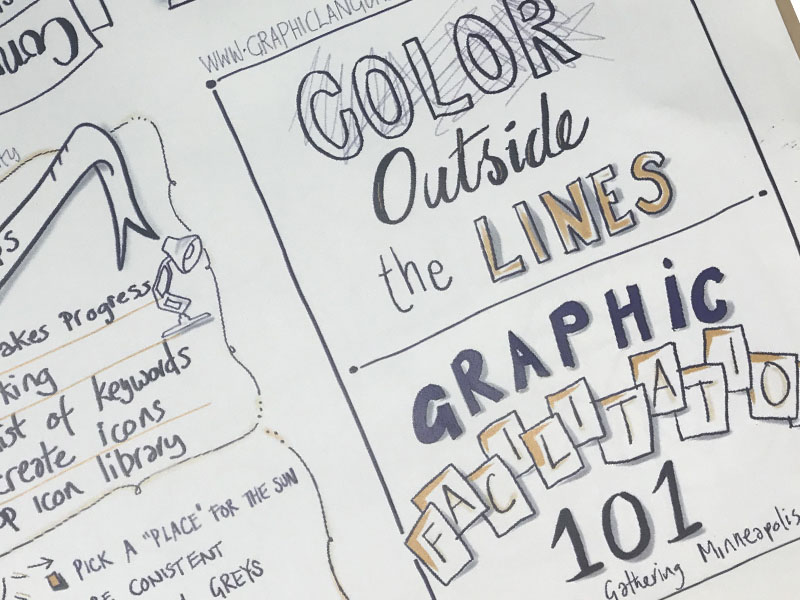 WWW.GRAPHICLANGU
COLOR
Outside
the LINES
GRAPHIC
FACILITATIO
101
Gathering Minneapolis
akes Progress
king
ist of keywords
create icons
P icon library
PICK A "PLACE" FOR THE SUN
E CONISTENT
GREYS